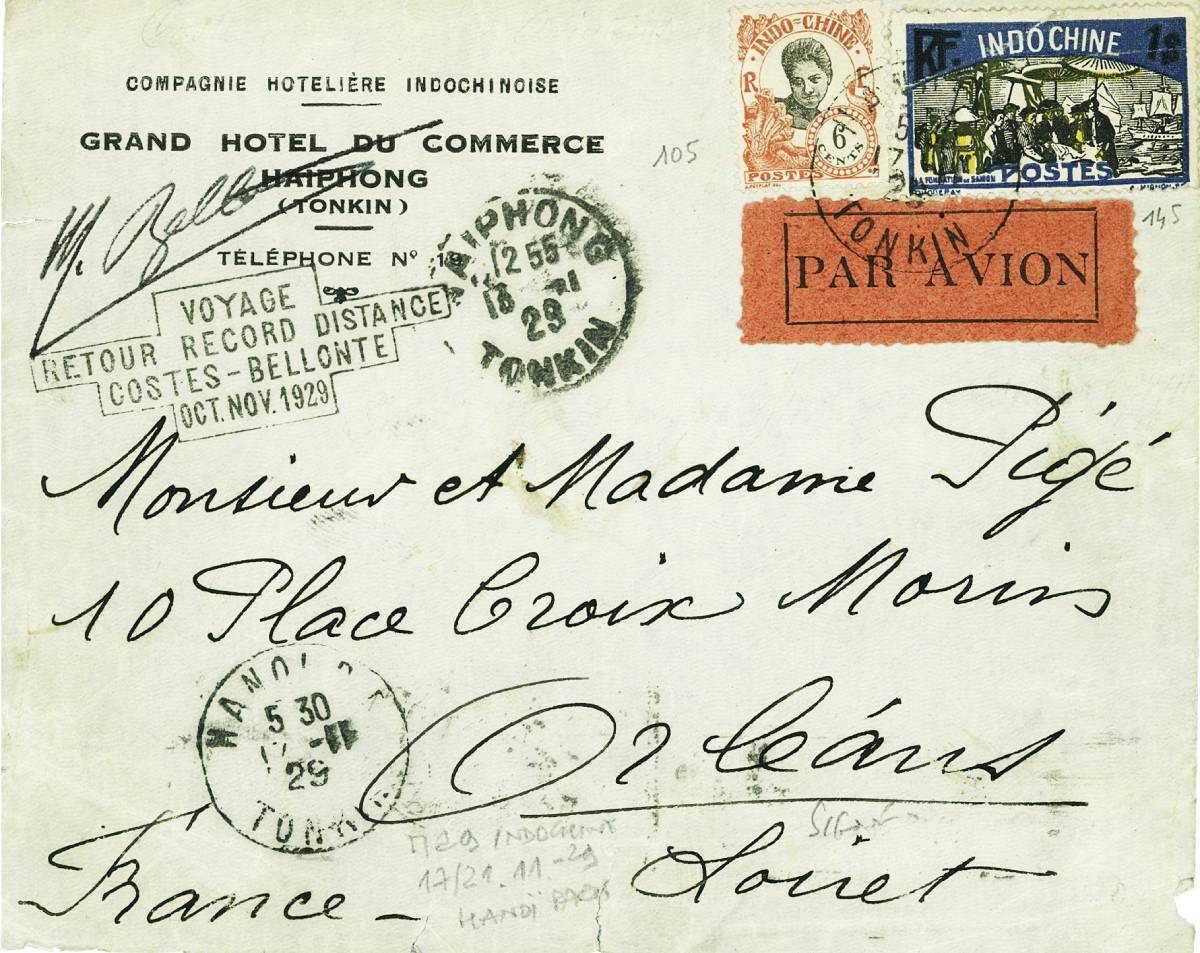 COMPAGNIE HOTELIÈRE INDOCHINOISE
GRAND HOTEL DU COMMERCE
HAIPHONG
(TONKIN)
TÉLÉPHONE N° 19
M. Bellonte
105
INDO-CHINE
R F
6
CENTS
POSTES
RF. INDOCHINE 1$
LA FONDATION DE SAIGON
POSTES
145
TONKIN
PAR AVION
HAIPHONG
12 55
29
TONKIN
VOYAGE
RETOUR RECORD DISTANCE
COSTES-BELLONTE
OCT. NOV. 1929
Monsieur et Madame Pigé
10 Place Croix Morin
Orléans
Loiret
France
HANOI
5 30
-11
29
TONKIN
INDOCHINE
17/21.11.-29
HANOÏ PARIS
SIGNÉ